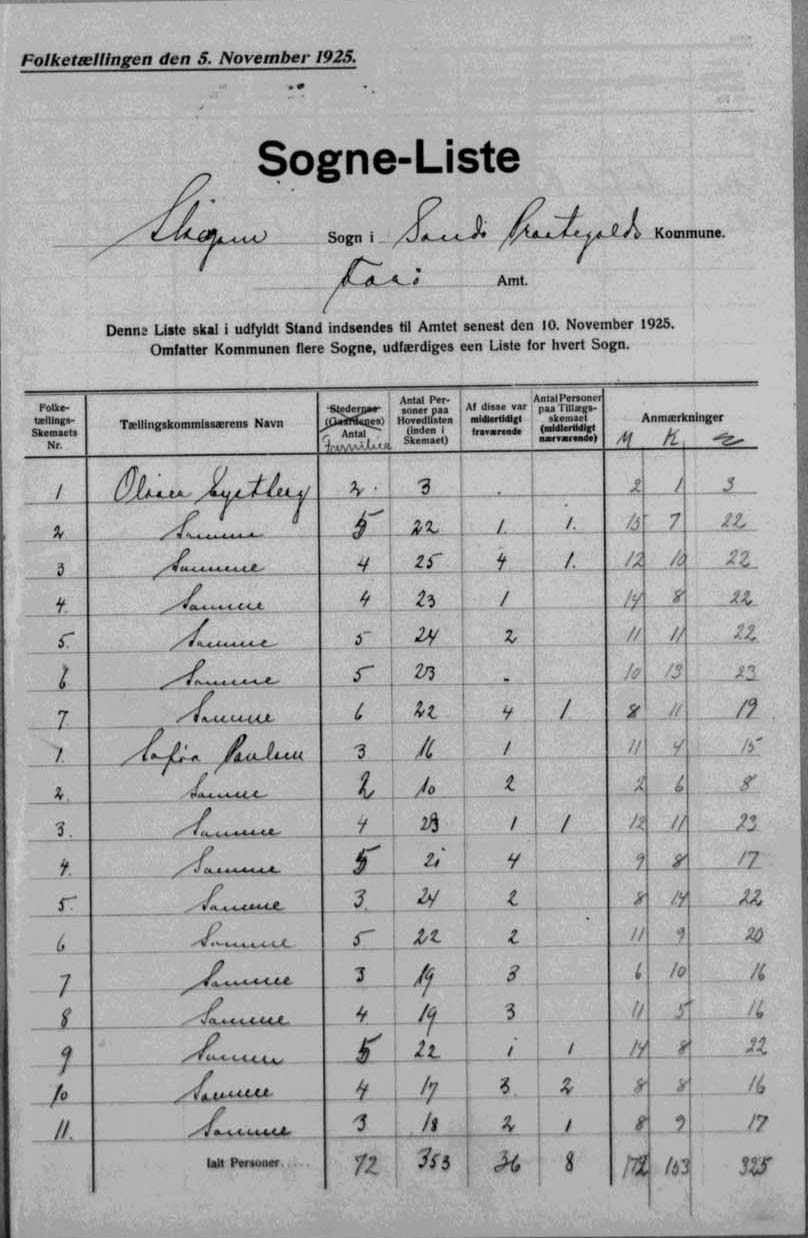 Folketællingen den 5. November 1925.
Sogne-Liste
Sogn i Sands Præstegælds Kommune.
Færø Amt.
Denne Liste skal i udfyldt Stand indsendes til Amtet senest den 10. November 1925.
Omfatter Kommunen flere Sogne, udfærdiges een Liste for hvert Sogn.
Folketællings-Skemaets Nr. Tællingskommissærens Navn Stedernes (Gaardenes) Antal Familier Antal Personer paa Hovedlisten (inden i Skemaet) Af disse var midlertidigt fraværende Antal Personer paa Tillægsskemaet (midlertidigt nærværende) Anmærkninger
M K
1 2 3 . 2 1 3
2 Samme 5 22 1 1 15 7 22
3 Samme 4 25 4 1 12 10 22
4. Samme 4 23 1 14 8 22
5. Samme 5 24 2 11 11 22
6 Samme 5 23 - 10 13 23
7. Samme 6 22 4 1 8 11 19
1. Poulsen 3 16 1 11 4 15
2. Samme 2 10 2 2 6 8
3. Samme 4 23 1 1 12 11 23
4. Samme 5 21 4 9 8 17
5. Samme 3 24 2 8 14 22
6 Samme 5 22 2 11 9 20
7 Samme 3 19 3 6 10 16
8 Samme 4 19 3 11 5 16
9 Samme 5 22 1 1 14 8 22
10 Samme 4 17 3 2 8 8 16
11. Samme 3 18 2 1 8 9 17
Ialt Personer..... 72 353 36 8 172 153 325